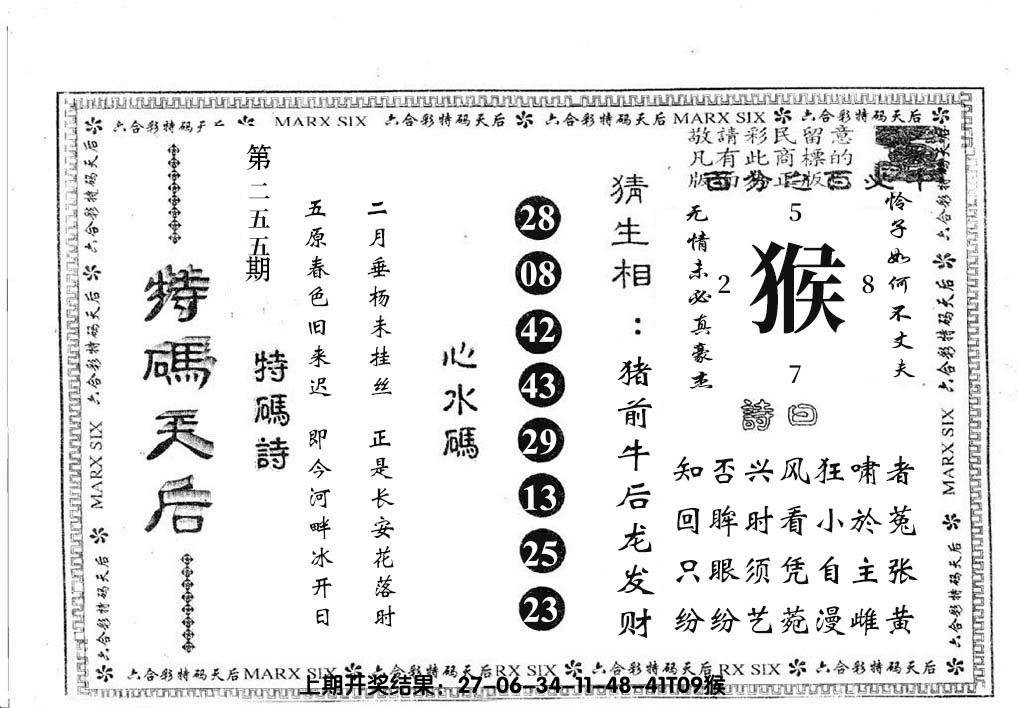 六合彩特码天后 MARX SIX 六合彩特码天后 六合彩特码天后 MARX SIX 六合彩特码天后
敬請彩民留意
凡有此商標的
版面为正版
怜子如何不丈夫
5
2 猴 8
7
无情未必真豪杰
詩曰
知否兴风狂啸者
回眸时看小於菟
只眼须凭自主张
纷纷艺菀漫雌黄
猜生相：猪前牛后龙发财
28
08
42
43
29
13
25
23
心水碼
二月垂杨未挂丝 正是长安花落时
五原春色旧来迟 即今河畔冰开日
特碼詩
第二五五期
特碼天后
六合彩特码天后 六合彩特码天后 MARX SIX 六合彩特码天后
六合彩特码天后 六合彩特码天后 MARX SIX 六合彩特码天后
六合彩特码天后 MARX SIX 六合彩特码天后 RX SIX 六合彩特码天后 RX SIX 六合彩特码天后
上期开奖结果：27-06-34-11-48-41T09猴